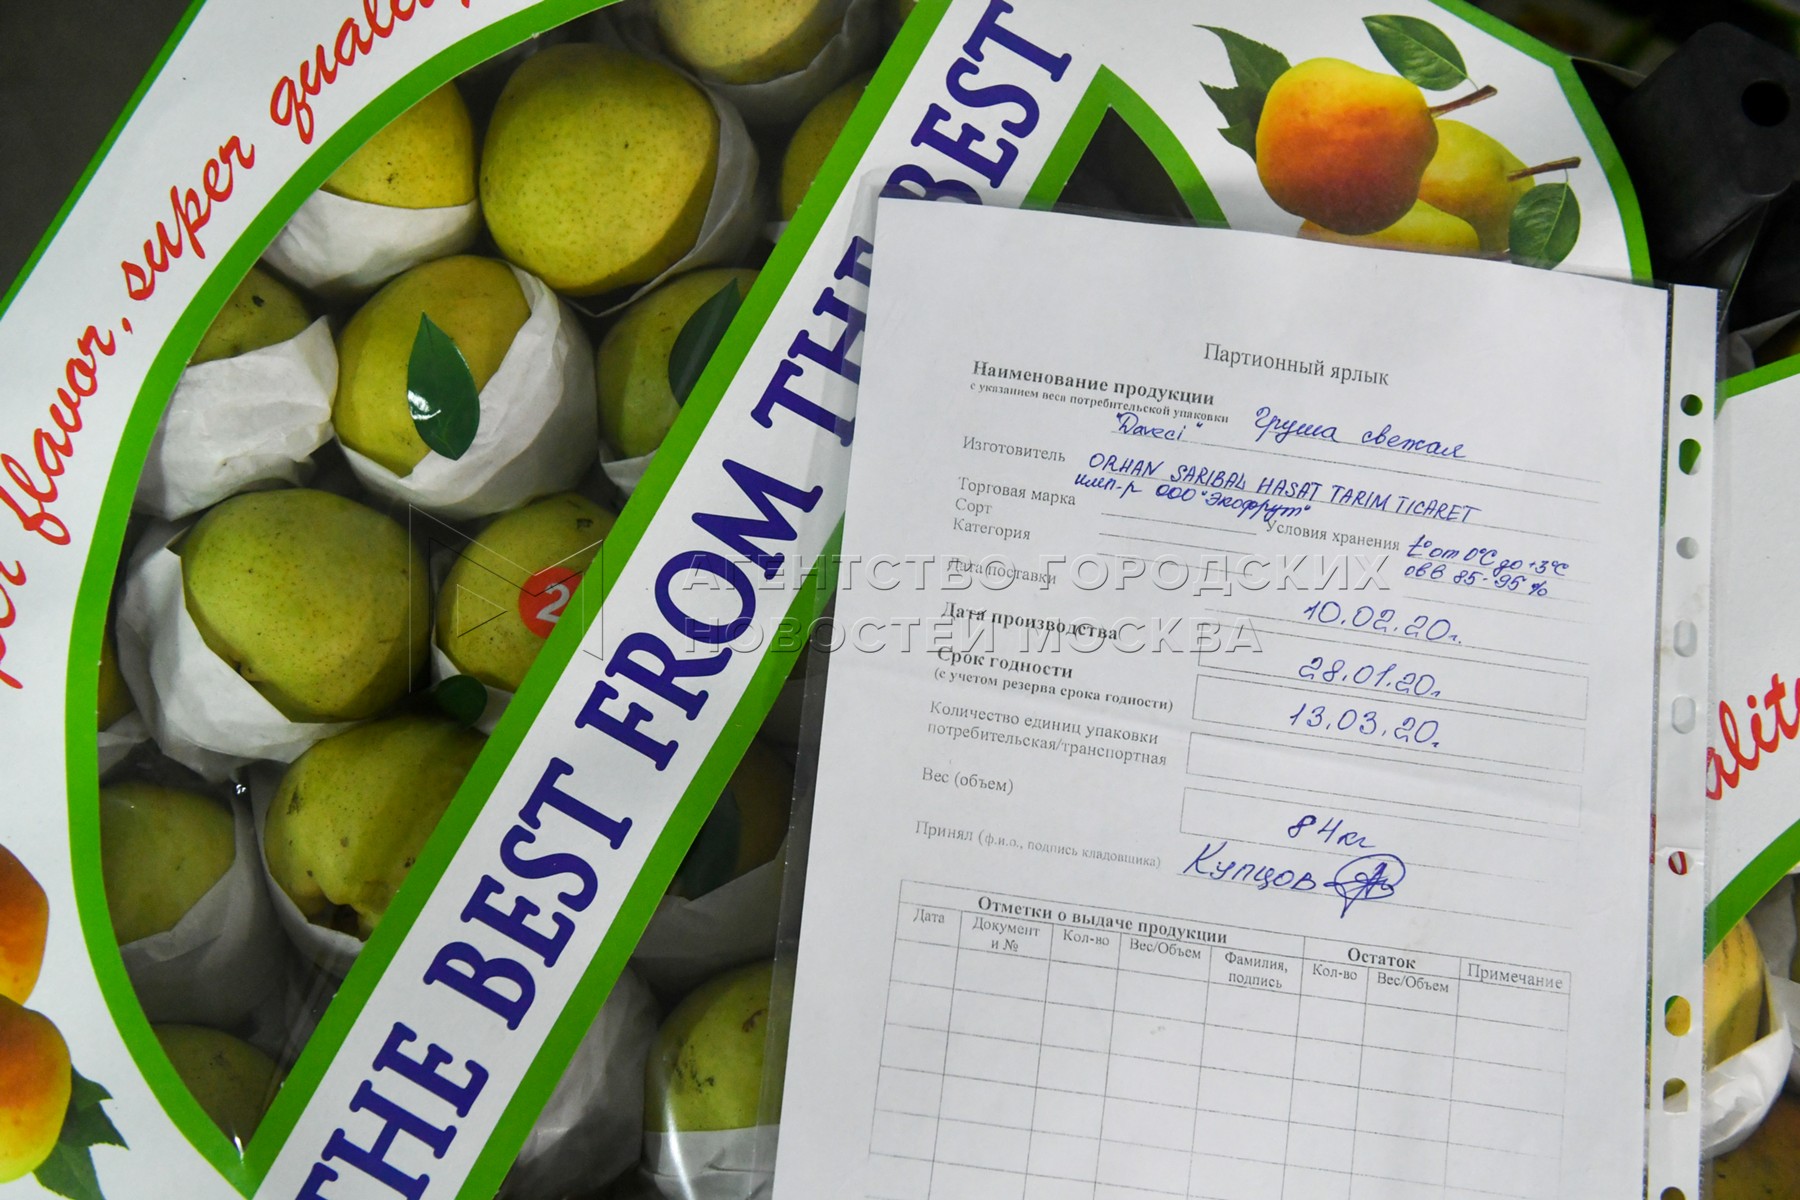 per flavor, super quality
THE BEST FROM THE BEST
2
ality
Партионный ярлык
Наименование продукции
с указанием веса потребительской упаковки
Груша свежая
"Daveci"
Изготовитель
ORHAN SARIBAL HASAT TARIM TICARET
имп-р ООО "Экофрут"
Торговая марка
Сорт
Условия хранения t° от 0°C до +3°C
Категория
ОВВ 85-95%
Дата поставки
10.02.20г.
Дата производства
28.01.20г.
Срок годности
(с учетом резерва срока годности)
13.03.20г.
Количество единиц упаковки
потребительская/транспортная
Вес (объем)
84кг
Принял (ф.и.о., подпись кладовщика)
Купцов
Отметки о выдаче продукции
Остаток
Примечание
Дата
Документ и №
Кол-во
Вес/Объем
Фамилия, подпись
Кол-во
Вес/Объем
АГЕНТСТВО ГОРОДСКИХ
НОВОСТЕЙ МОСКВА